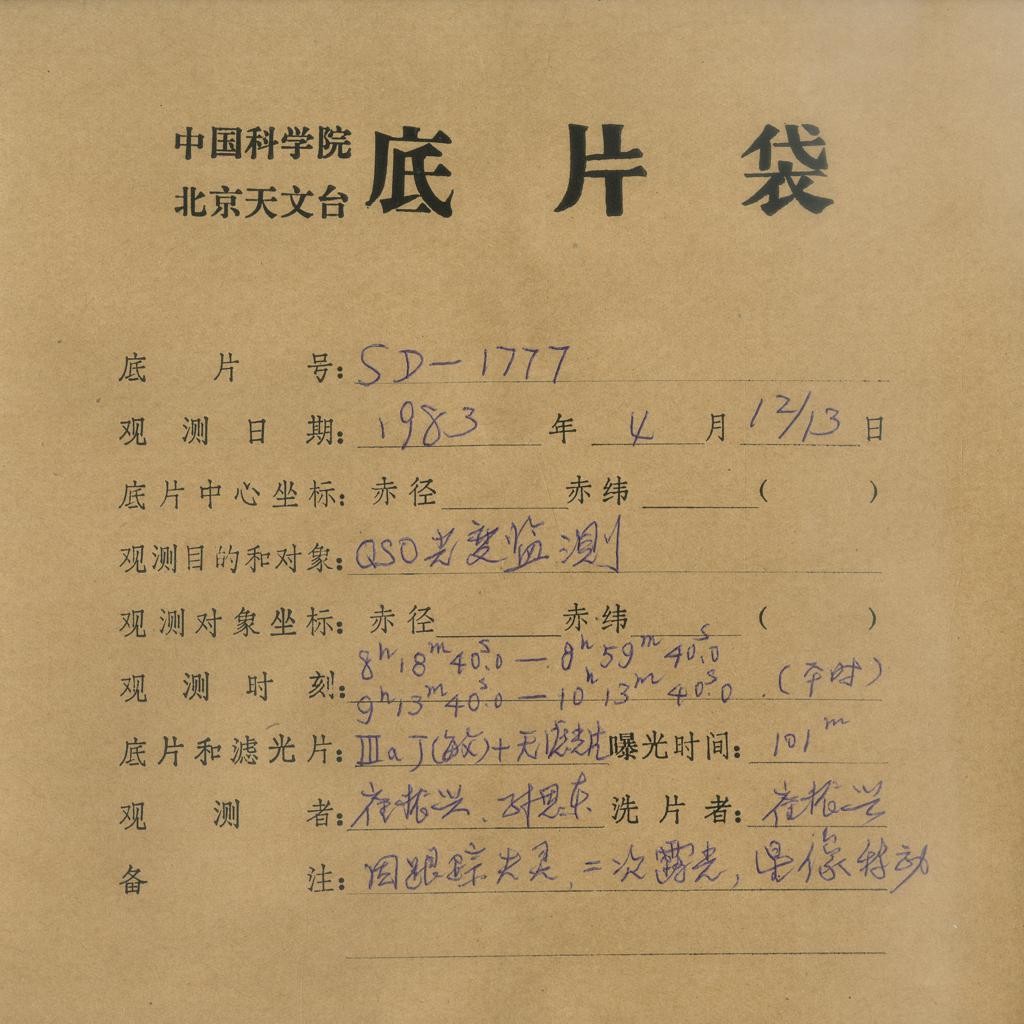 中国科学院
北京天文台
底片袋
底片号: SD-1777
观测日期: 1983年4月12/13日
底片中心坐标: 赤径 赤纬 ( )
观测目的和对象: QSO光变监测
观测对象坐标: 赤径 赤纬 ( )
8h18m40s.0 — 8h59m40s.0
观测时刻: 9h13m40s.0 — 10h13m40s.0 (平时)
底片和滤光片: IIIaJ(敏)+无滤光片 曝光时间: 101m
观测者: 崔振兴、 洗片者: 崔振兴
备注: 因跟踪失灵,二次露光,星像移动